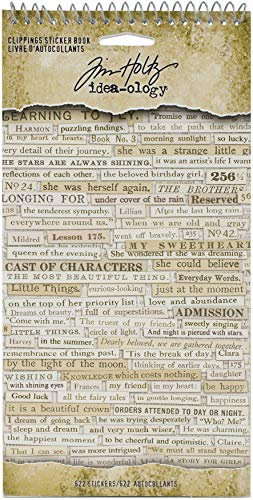 CLIPPINGS STICKER BOOK
LIVRE D'AUTOCOLLANTS
Tim Holtz
idea-ology
LEARNING TO FLY. Promise me
HARMON puzzling findings. to take the path that
in my heart of hearts. Book No. 3 morning sunlight so lucky,
very detail of their journey. she was a strange little
THE STARS ARE ALWAYS SHINING, it was an artist's life I want
reflections of each other. the beloved birthday girl, 256½
No 24. she was herself again. THE BROTHERS
LONGING FOR under cover of the rain Reserved
the tenderest sympathy. Lillian After the long rain.
everywhere around us. "when we are old and gray
Mildred Lesson 175. went away. #35 NO 42.
queen of the evening. MY SWEETHEART
CAST OF CHARACTERS she could believe
THE MOST BEAUTIFUL THING. Everyday Words.
Little Things. curious-looking just at the moment
on the top of her priority list love and abundance
Dreams of beauty. full of superstitions. ADMISSION
"Come with me." The trust of my sweetly singing
LITTLE THINGS. circle of light. And night is pierced with stars.
Harvey in the summer, Dearly beloved, we are gathered together
remembrance of things past. 'Tis the break of day. Clara
by the light of the moon. thinking of yesterday
WISHING KNOWLEDGE which costs nothing, daughter
with shining eyes Frances my friend in my heart: be happy
Good luck all the fairy tales, variety of things
it is a beautiful crown ORDERS ATTENDED TO DAY OR NIGHT.
dream of going back he was trying desperately "Who? Me?"
sleep under the stars. And she was warming
the happiest moment to be cheerful and optimistic. Claire.
That I was more intrigued STORY FOR GIRLS
622 STICKERS/622 AUTOCOLLANTS